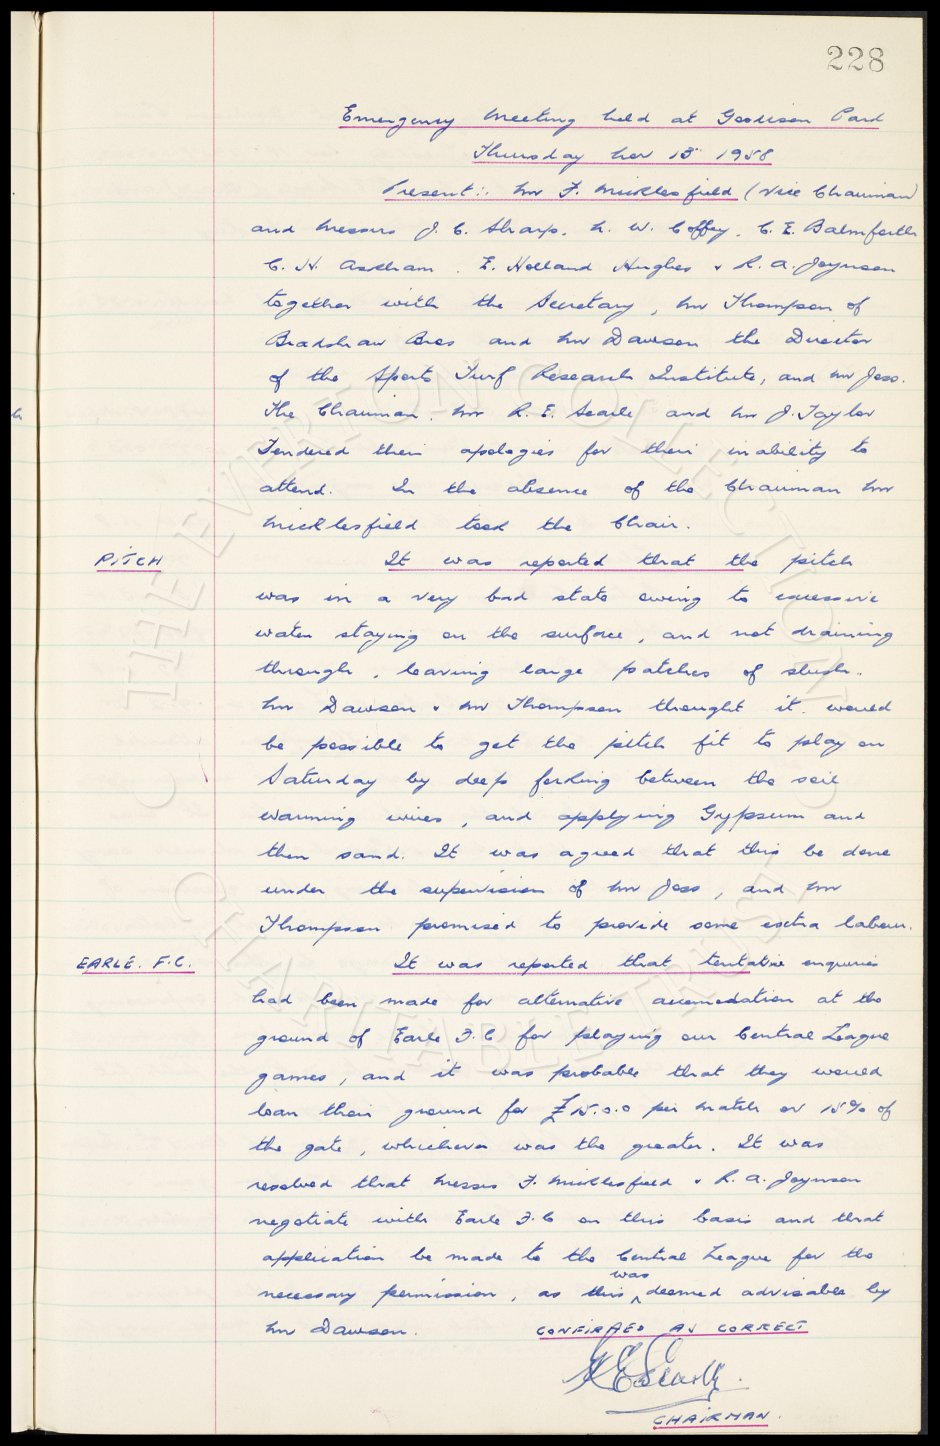 228
Emergency Meeting held at Goodison Park
Thursday Nov 13th 1958
Present:- Mr F. Micklesfield (Vice Chairman)
and Messrs J. C. Sharp. N. W. Coffey. C. E. Balmforth
C. H. Askham. E. Holland Hughes & R. A. Joynson
together with the Secretary, Mr Thompson of
Bradshaw Bros and Mr Dawson the Director
of the Sports Turf Research Institute, and Mr Jess.
The Chairman. Mr R. E. Searle and Mr J. Taylor
Tendered their apologies for their inability to
attend. In the absence of the Chairman Mr
Micklesfield took the Chair.
PITCH
It was reported that the pitch
was in a very bad state owing to excessive
water staying on the surface, and not draining
through, leaving large patches of slush.
Mr Dawson & Mr Thompson thought it would
be possible to get the pitch fit to play on
Saturday by deep forking between the soil
warming wires, and applying Gypsum and
then sand. It was agreed that this be done
under the supervision of Mr Jess, and Mr
Thompson promised to provide some extra labour.
EARLE. F.C.
It was reported that tentative enquiries
had been made for alternative accomodation at the
ground of Earle F.C for playing our Central League
games, and it was probable that they would
loan their ground for £15.0.0 per match or 15% of
the gate, whichever was the greater. It was
resolved that Messrs F. Micklesfield & R. A. Joynson
negotiate with Earle F.C on this basis and that
application be made to the Central League for the
necessary permission, as this was deemed advisable by
Mr Dawson.
CONFIRMED AS CORRECT
R E Searle
CHAIRMAN.
© THE EVERTON COLLECTION
CHARITABLE TRUST